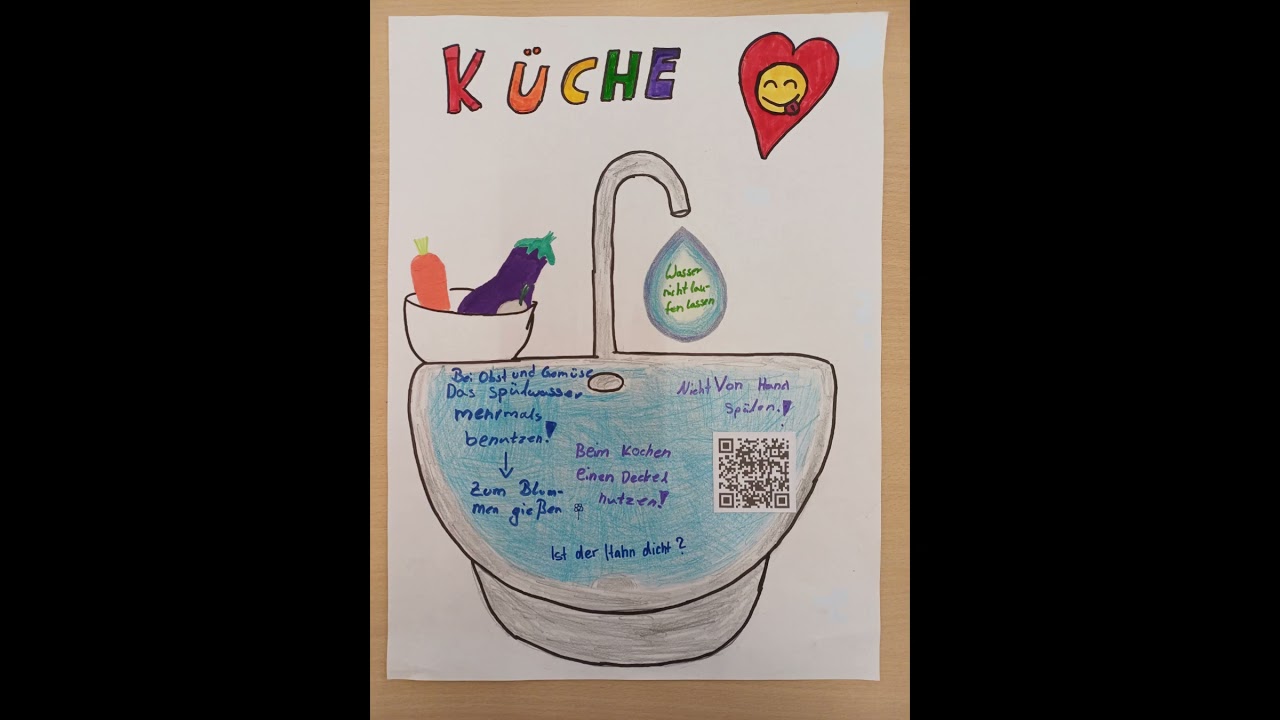 KÜCHE
Wasser
nicht lau-
fen lassen
Bei Obst und Gemüse
Das Spülwasser
mehrmals
benutzen!
Zum Blum-
men gießen
Nicht Von Hand
Spülen!
Beim Kochen
einen Deckel
nutzen!
Ist der Hahn dicht?